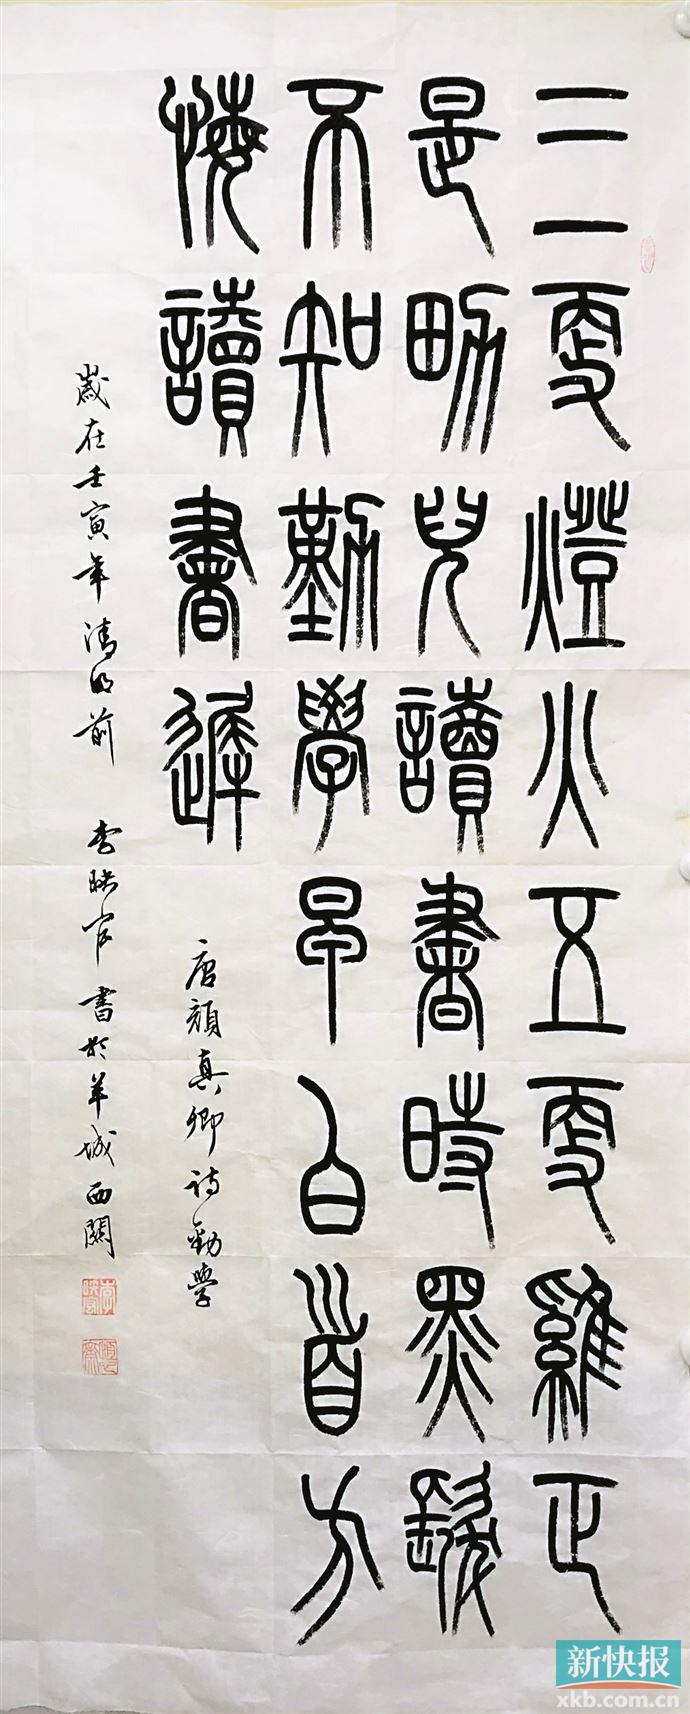 三更燈火五更雞正
是男兒讀書時黑髮
不知勤學早白首方
悔讀書遲
唐顏真卿詩勸學
歲在壬寅年清明前 李映官 書於羊城西關
新快报
xkb.com.cn